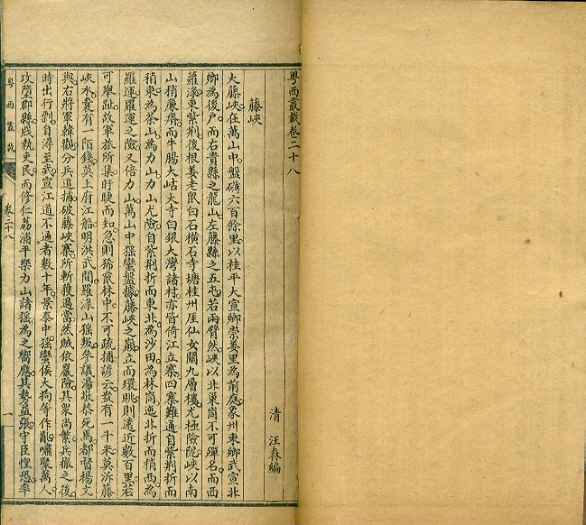 粵西叢載卷二十八
清 汪森編
藤峽
大藤峽在萬山中盤礴六百餘里以桂平大宣鄉崇姜里為前庭象州東鄉武宣北
鄉為後戶而右貴縣之龍山左藤縣之五屯若兩臂然峽以北巢峒不可殫名而西
羅淥東紫荊後根姜老鼠白石橫石寺塘桂州厓仙女關九層樓尤極險阸峽以南
山稍廉瘠而牛腸大岵大寺白銀大灣諸村亦皆倚江立寨四塞難通自紫荊折而
稍東為茶山為力山力山尤險自紫荊折而東北為沙田為林峒迤北折而稍西為
羅運羅運之險又倍力山萬山中猺蠻盤據藤峽之巔立而環眺則遠近數百里若
可舉趾故軍旅所集盱睫而知急則狶竄林中不可疏捕諺云盎有一斗米莫泝藤
峽水囊有一陌錢莫上府江船明洪武間羅淥山猺叛參議湯敬恭死焉都督楊文
與右將軍韓觀分兵追捕破藤峽寨所斬獲過當然賊依巖險其眾尚繁兵撤之後
時出行剽自潯至武宣江道不通者數十年景泰中猺蠻侯大狗等作亂嘯聚萬人
攻墮郡縣戕執吏民而修仁荔浦平樂力山諸猺為之響應其勢益張守臣惶恐率
粵西叢載
卷二十八
一